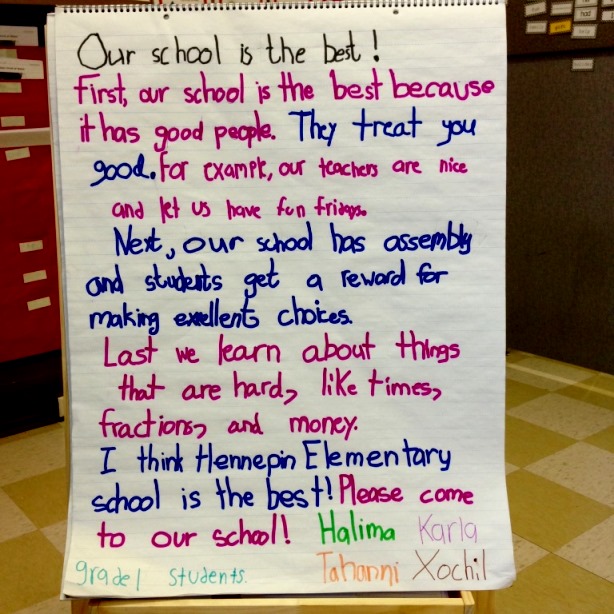 Our school is the best!
First, our school is the best because
it has good people. They treat you
good. For example, our teachers are nice
and let us have fun fridays.
Next, our school has assembly
and students get a reward for
making exellents choices.
Last we learn about things
that are hard, like times,
fractions, and money.
I think Hennepin Elementary
school is the best! Please come
to our school! Halima Karla
grade 1 students. Tahanni Xochil
had